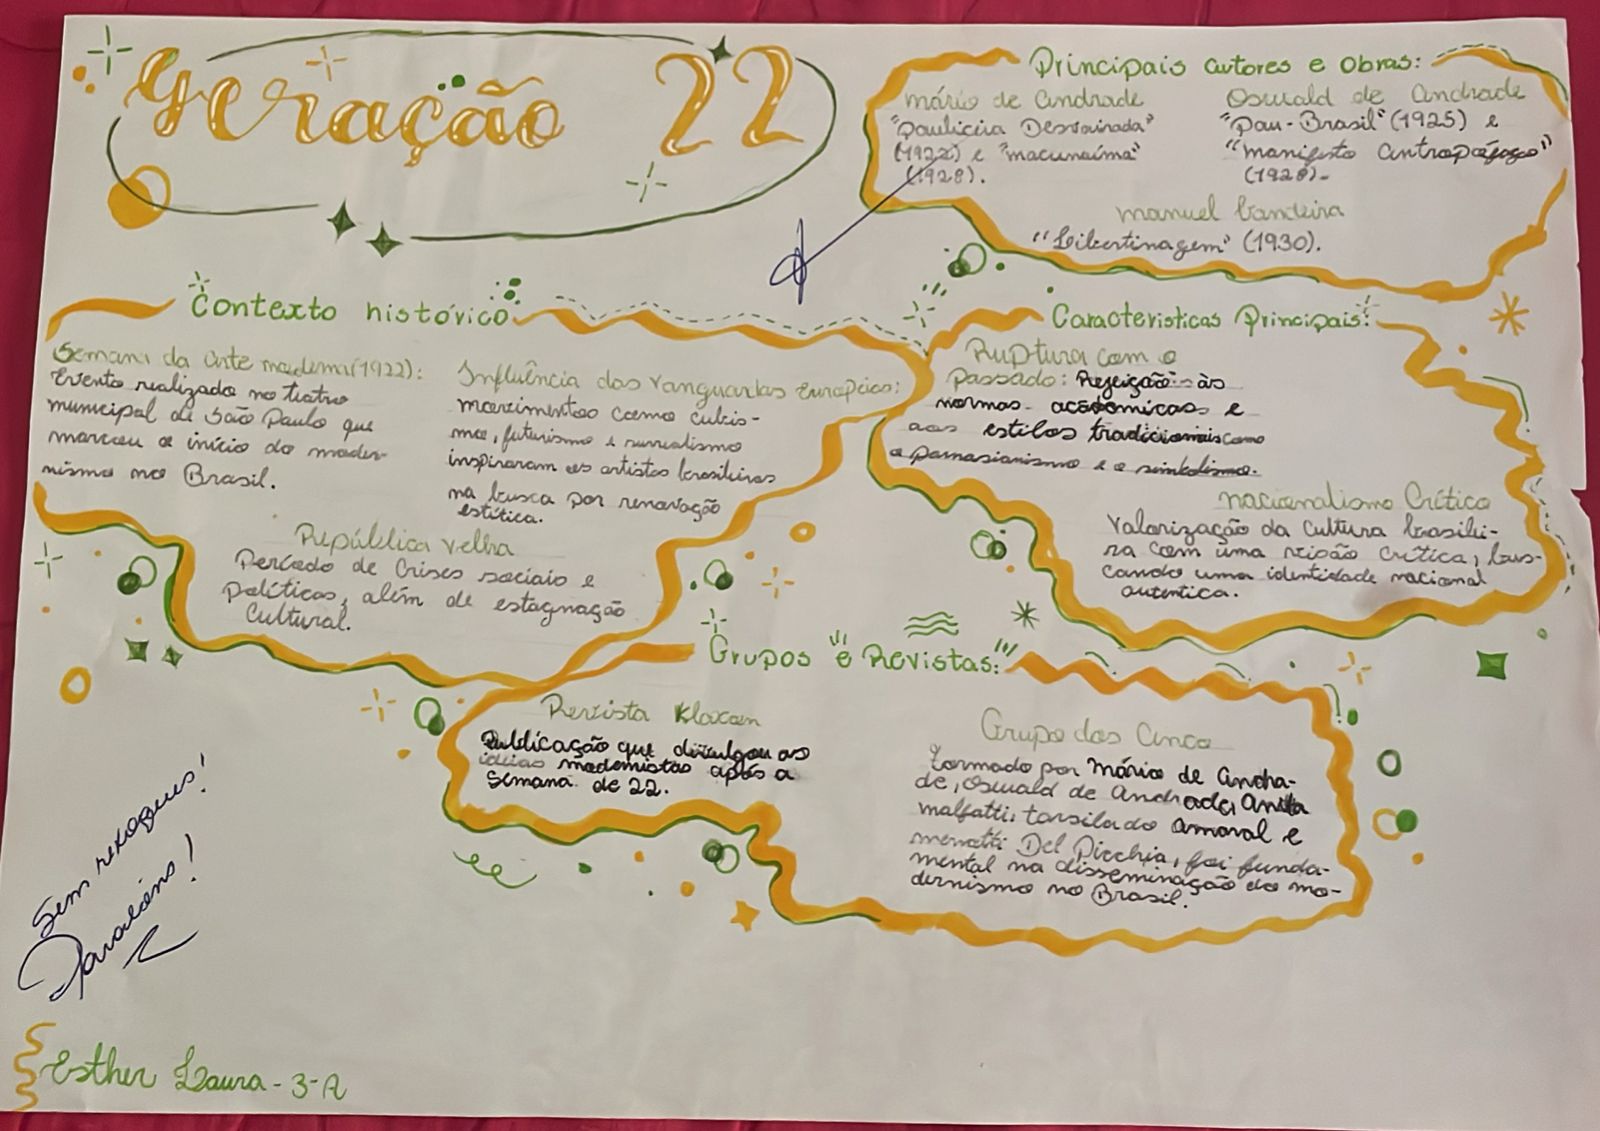 Geração 22
Principais autores e Obras:
Mário de Andrade
"Paulicéia Desvairada"
(1922) e "Macunaíma"
(1928).
Oswald de Andrade
"Pau-Brasil" (1925) e
"Manifesto Antropófago"
(1928)-
Manuel Bandeira
"Libertinagem" (1930).
Contexto histórico
Semana da Arte moderna (1922):
Evento realizado no teatro
municipal de São Paulo que
marcou o início do moder-
nismo no Brasil.
Influência das vanguardas Européias:
movimentos como cubis-
mo, futurismo e surrealismo
inspiraram os artistas brasileiros
na busca por renovação
estética.
República velha
Período de Crises sociais e
Políticas, além de estagnação
Cultural.
Caracteristicas Principais:
Ruptura com o
passado: Rejeição às
normas acadêmicas e
aos estilos tradicionais como
o parnasianismo e o simbolismo.
nacionalismo Crítico
Valorização da Cultura brasilei-
ra com uma visão Crítica, bus-
cando uma identidade nacional
autentica.
Grupos e Revistas:
Revista Klaxon
Publicação que divulgou as
ideias modernistas após a
Semana de 22.
Grupo dos Cinco
Formado por Mário de Andra-
de, Oswald de Andrade, Anita
malfatti, tarsila do Amaral e
menotti Del Picchia, foi funda-
mental na disseminação do mo-
dernismo no Brasil.
Sem retoques!
Parabéns!
Esther Laura - 3-A